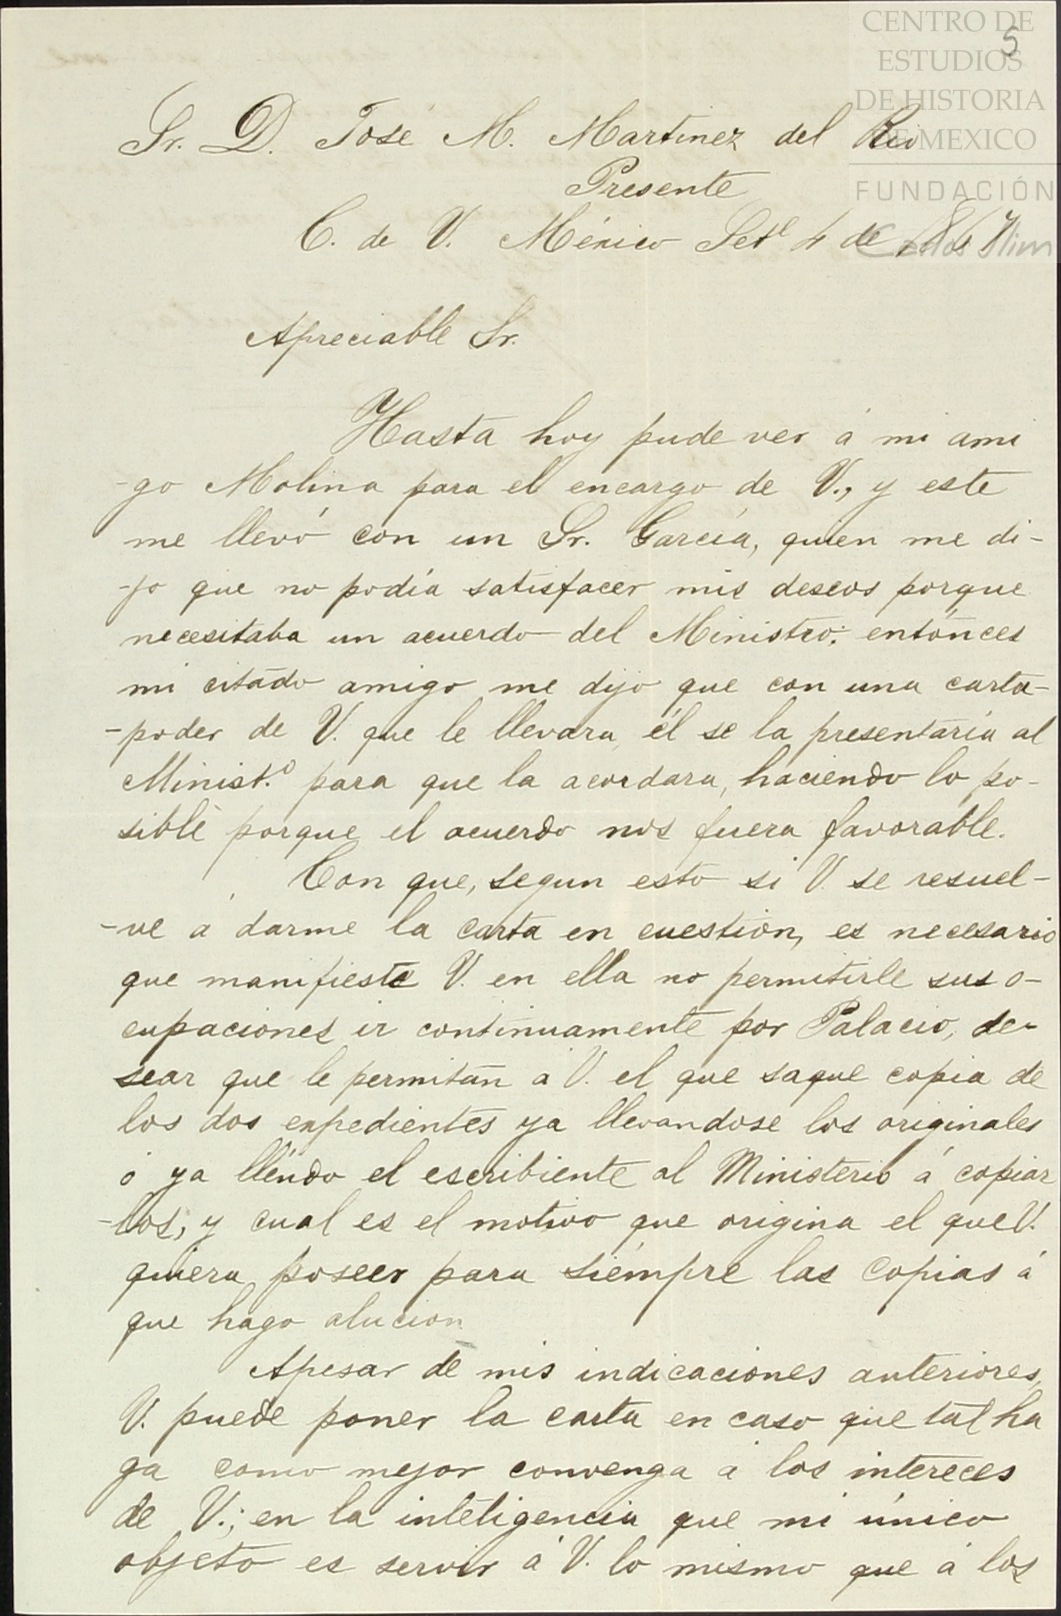 CENTRO DE
ESTUDIOS
DE HISTORIA
DE MEXICO
FUNDACIÓN
Carlos Slim
5
Sr. D. José M. Martinez del Rio
Presente
C. de V. México Set.e 4 de 1867
Apreciable Sr.
Hasta hoy pude ver á mi ami
-go Molina para el encargo de V., y este
me llevó con un Sr. García, quien me di-
-jo que no podía satisfacer mis deseos porque
necesitaba un acuerdo del Ministro: entónces
mi citado amigo me dijo que con una carta-
-poder de V. que le llevara él se la presentaría al
Minist.o para que la acordara, haciendo lo po-
sible porque el acuerdo nos fuera favorable.
Con que, segun esto si V. se resuel-
-ve á darme la carta en cuestion, es necesario
que manifieste V. en ella no permitirle sus o-
cupaciones ir continuamente por Palacio, de-
sear que le permitan á V. el que saque copia de
los dos expedientes ya llevandose los originales
ó ya lléndo el escribiente al Ministerio á copiar
-los, y cual es el motivo que origina el que V.
quiera poseer para siempre las copias á
que hago alucion
Apesar de mis indicaciones anteriores,
V. puede poner la carta en caso que tal ha
ga como mejor convenga á los intereces
de V.; en la inteligencia que mi único
objeto es servir á V. lo mismo que á los